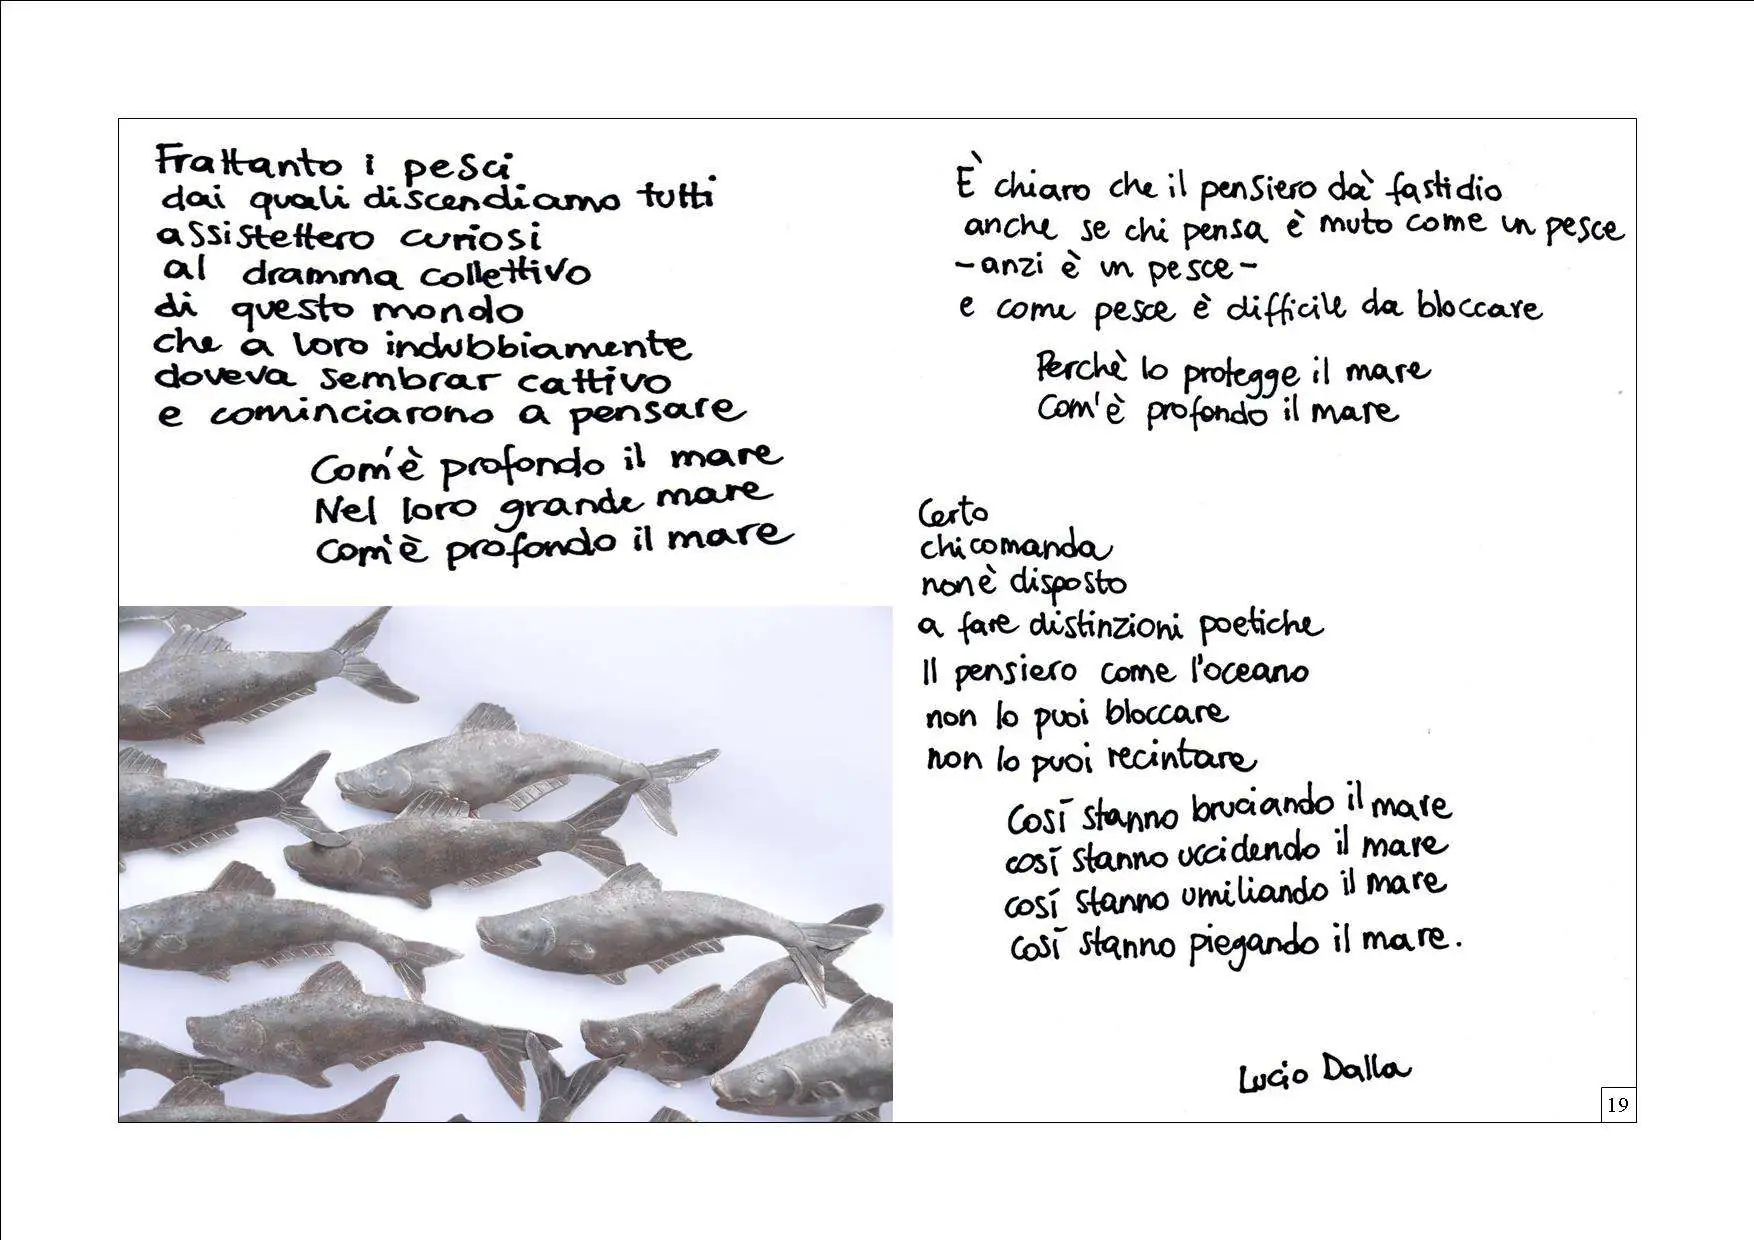 Frattanto i pesci
dai quali discendiamo tutti
assistettero curiosi
al dramma collettivo
di questo mondo
che a loro indubbiamente
doveva sembrar cattivo
e cominciarono a pensare
Com'è profondo il mare
Nel loro grande mare
Com'è profondo il mare
È chiaro che il pensiero dà fastidio
anche se chi pensa è muto come un pesce
- anzi è un pesce -
e come pesce è difficile da bloccare
Perchè lo protegge il mare
Com'è profondo il mare
Certo
chi comanda
non è disposto
a fare distinzioni poetiche
Il pensiero come l'oceano
non lo puoi bloccare
non lo puoi recintare
Così stanno bruciando il mare
così stanno uccidendo il mare
così stanno umiliando il mare
così stanno piegando il mare.
Lucio Dalla
19